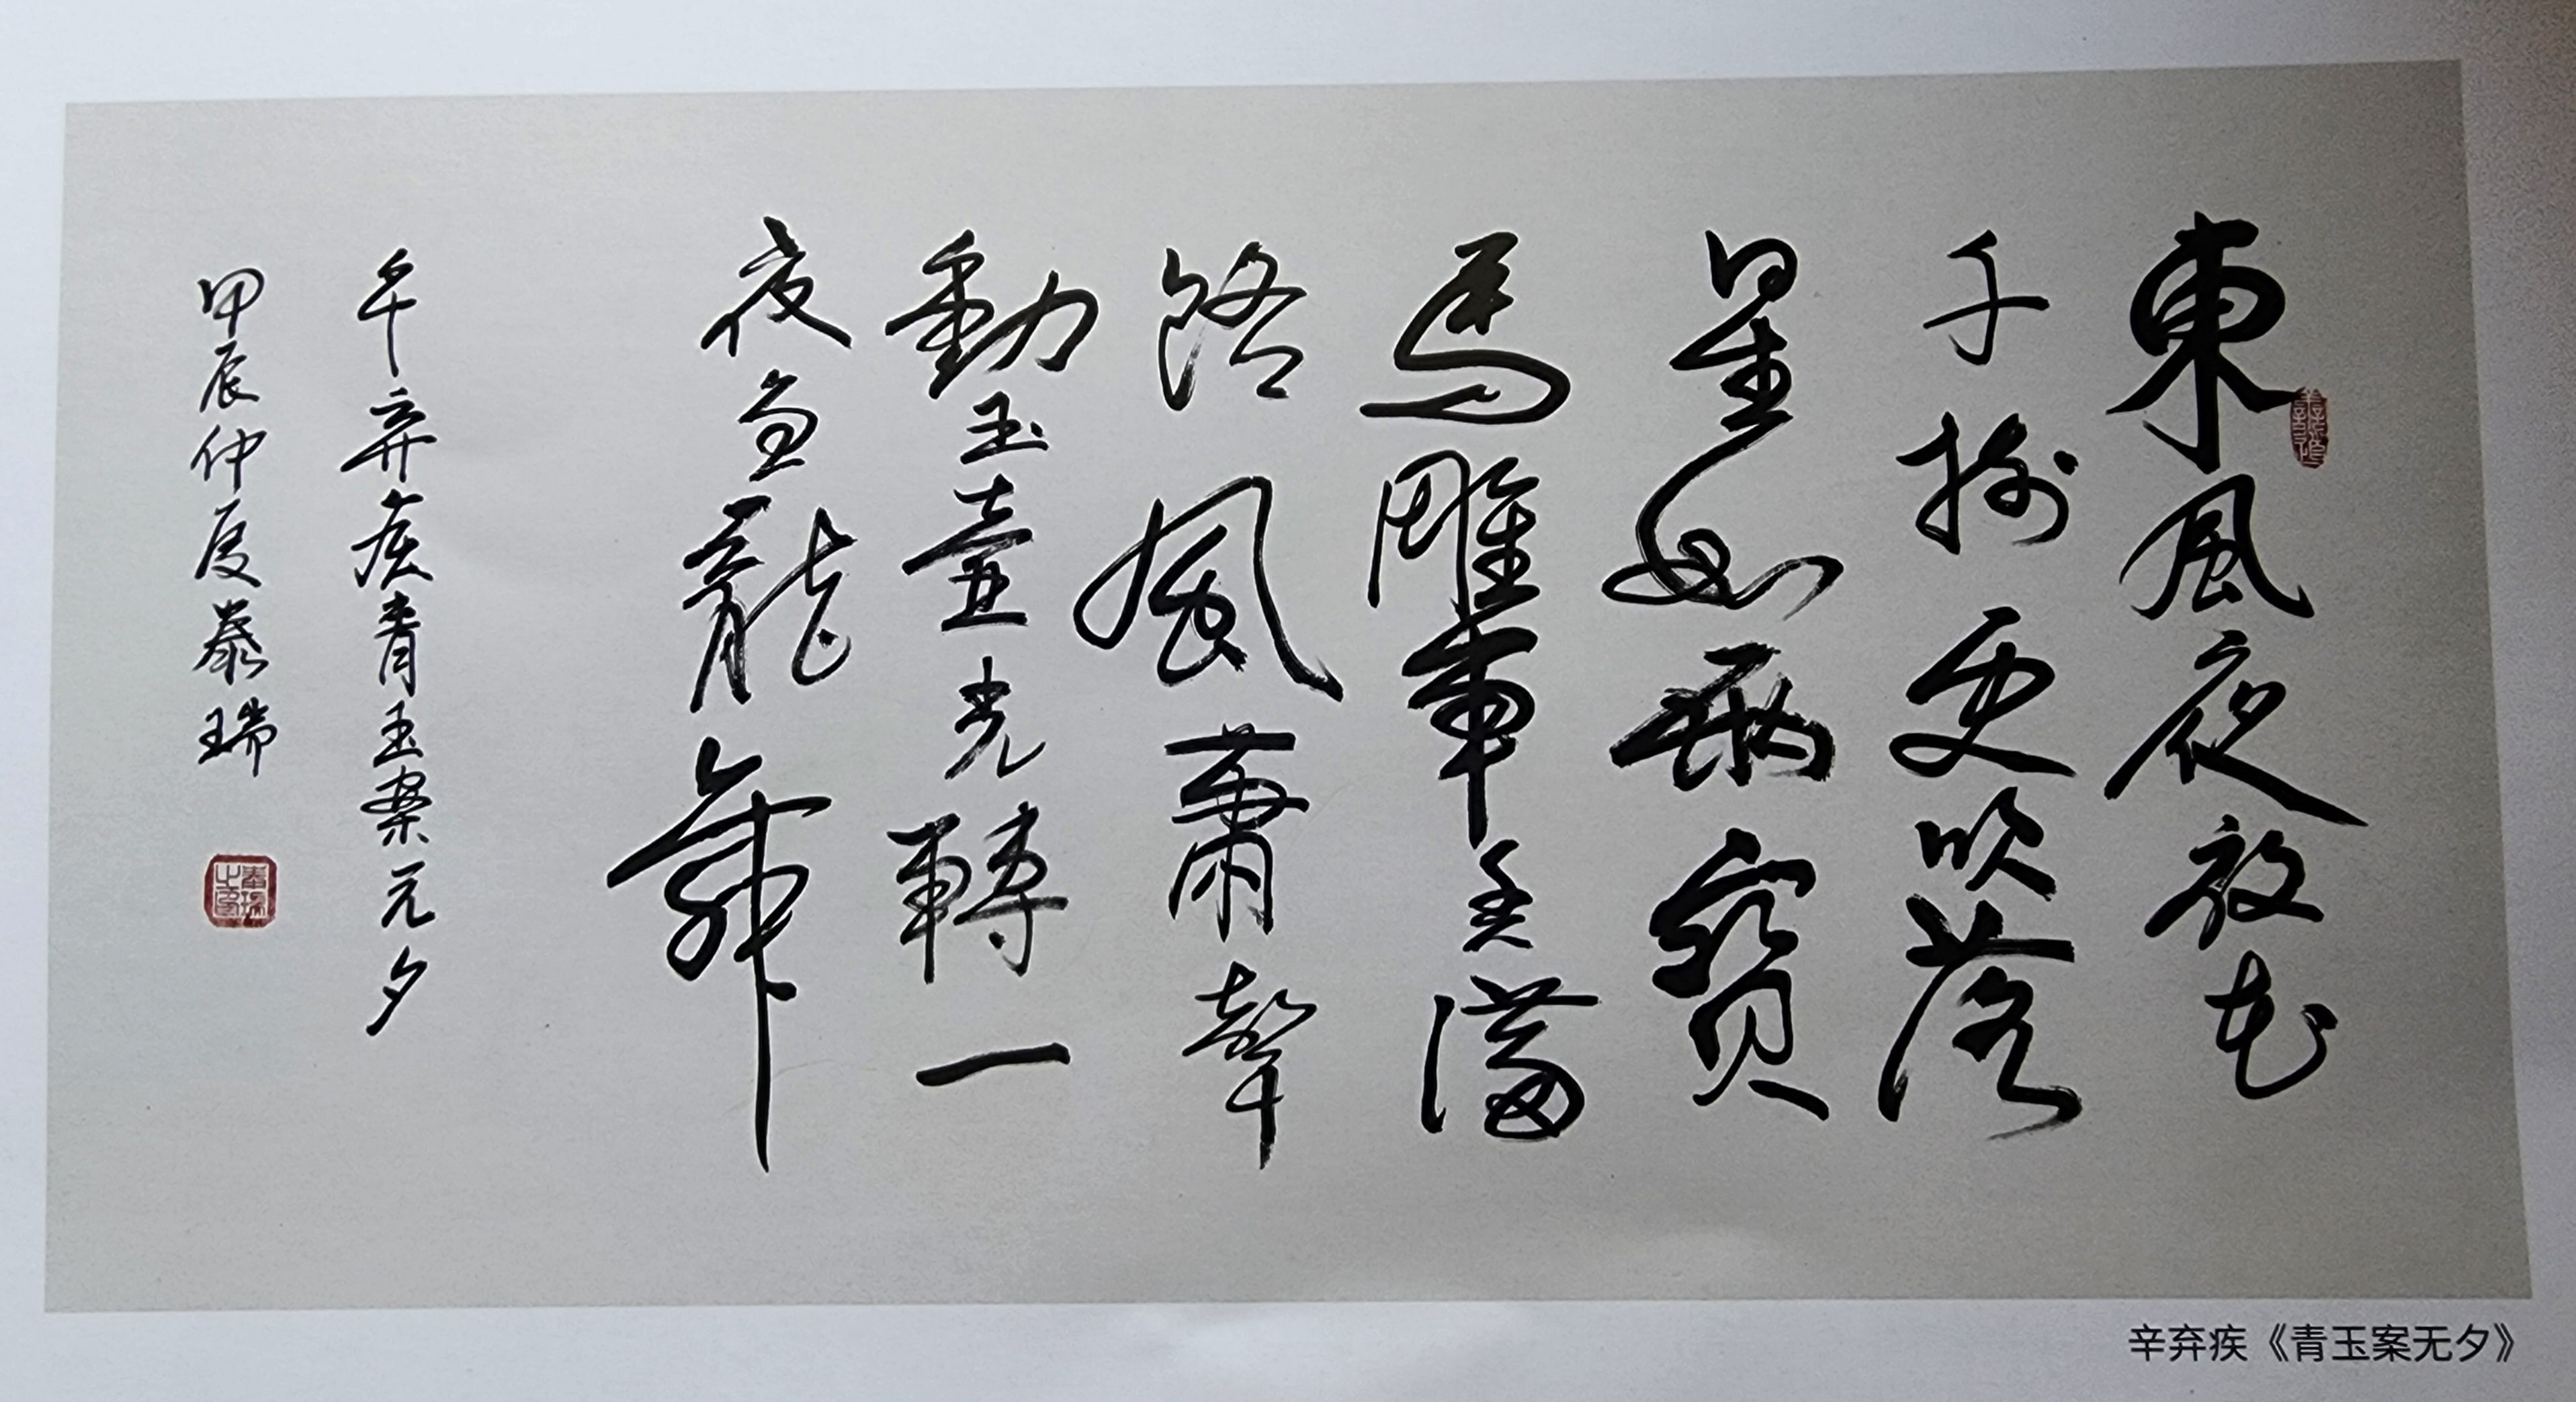 東風夜放花
千樹更吹落
星如雨寶
馬雕車香滿
路風蕭聲
動玉壺光轉一
夜魚龍舞
辛弃疾青玉案元夕
甲辰仲夏泰瑞
辛弃疾《青玉案无夕》